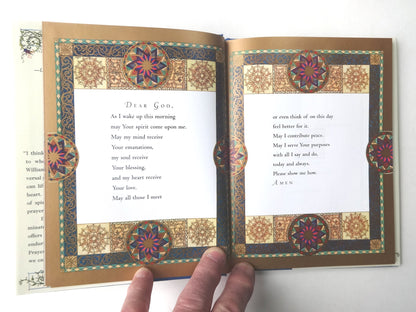 DEAR GOD,
As I wake up this morning
may Your spirit come upon me.
May my mind receive
Your emanations,
my soul receive
Your blessing,
and my heart receive
Your love.
May all those I meet
or even think of on this day
feel better for it.
May I contribute peace.
May I serve Your purposes
with all I say and do,
today and always.
Please show me how.
AMEN
"I think
to wha
William
versal
can lif
of spi
prayer
minate
offers
under
Prayer
we can